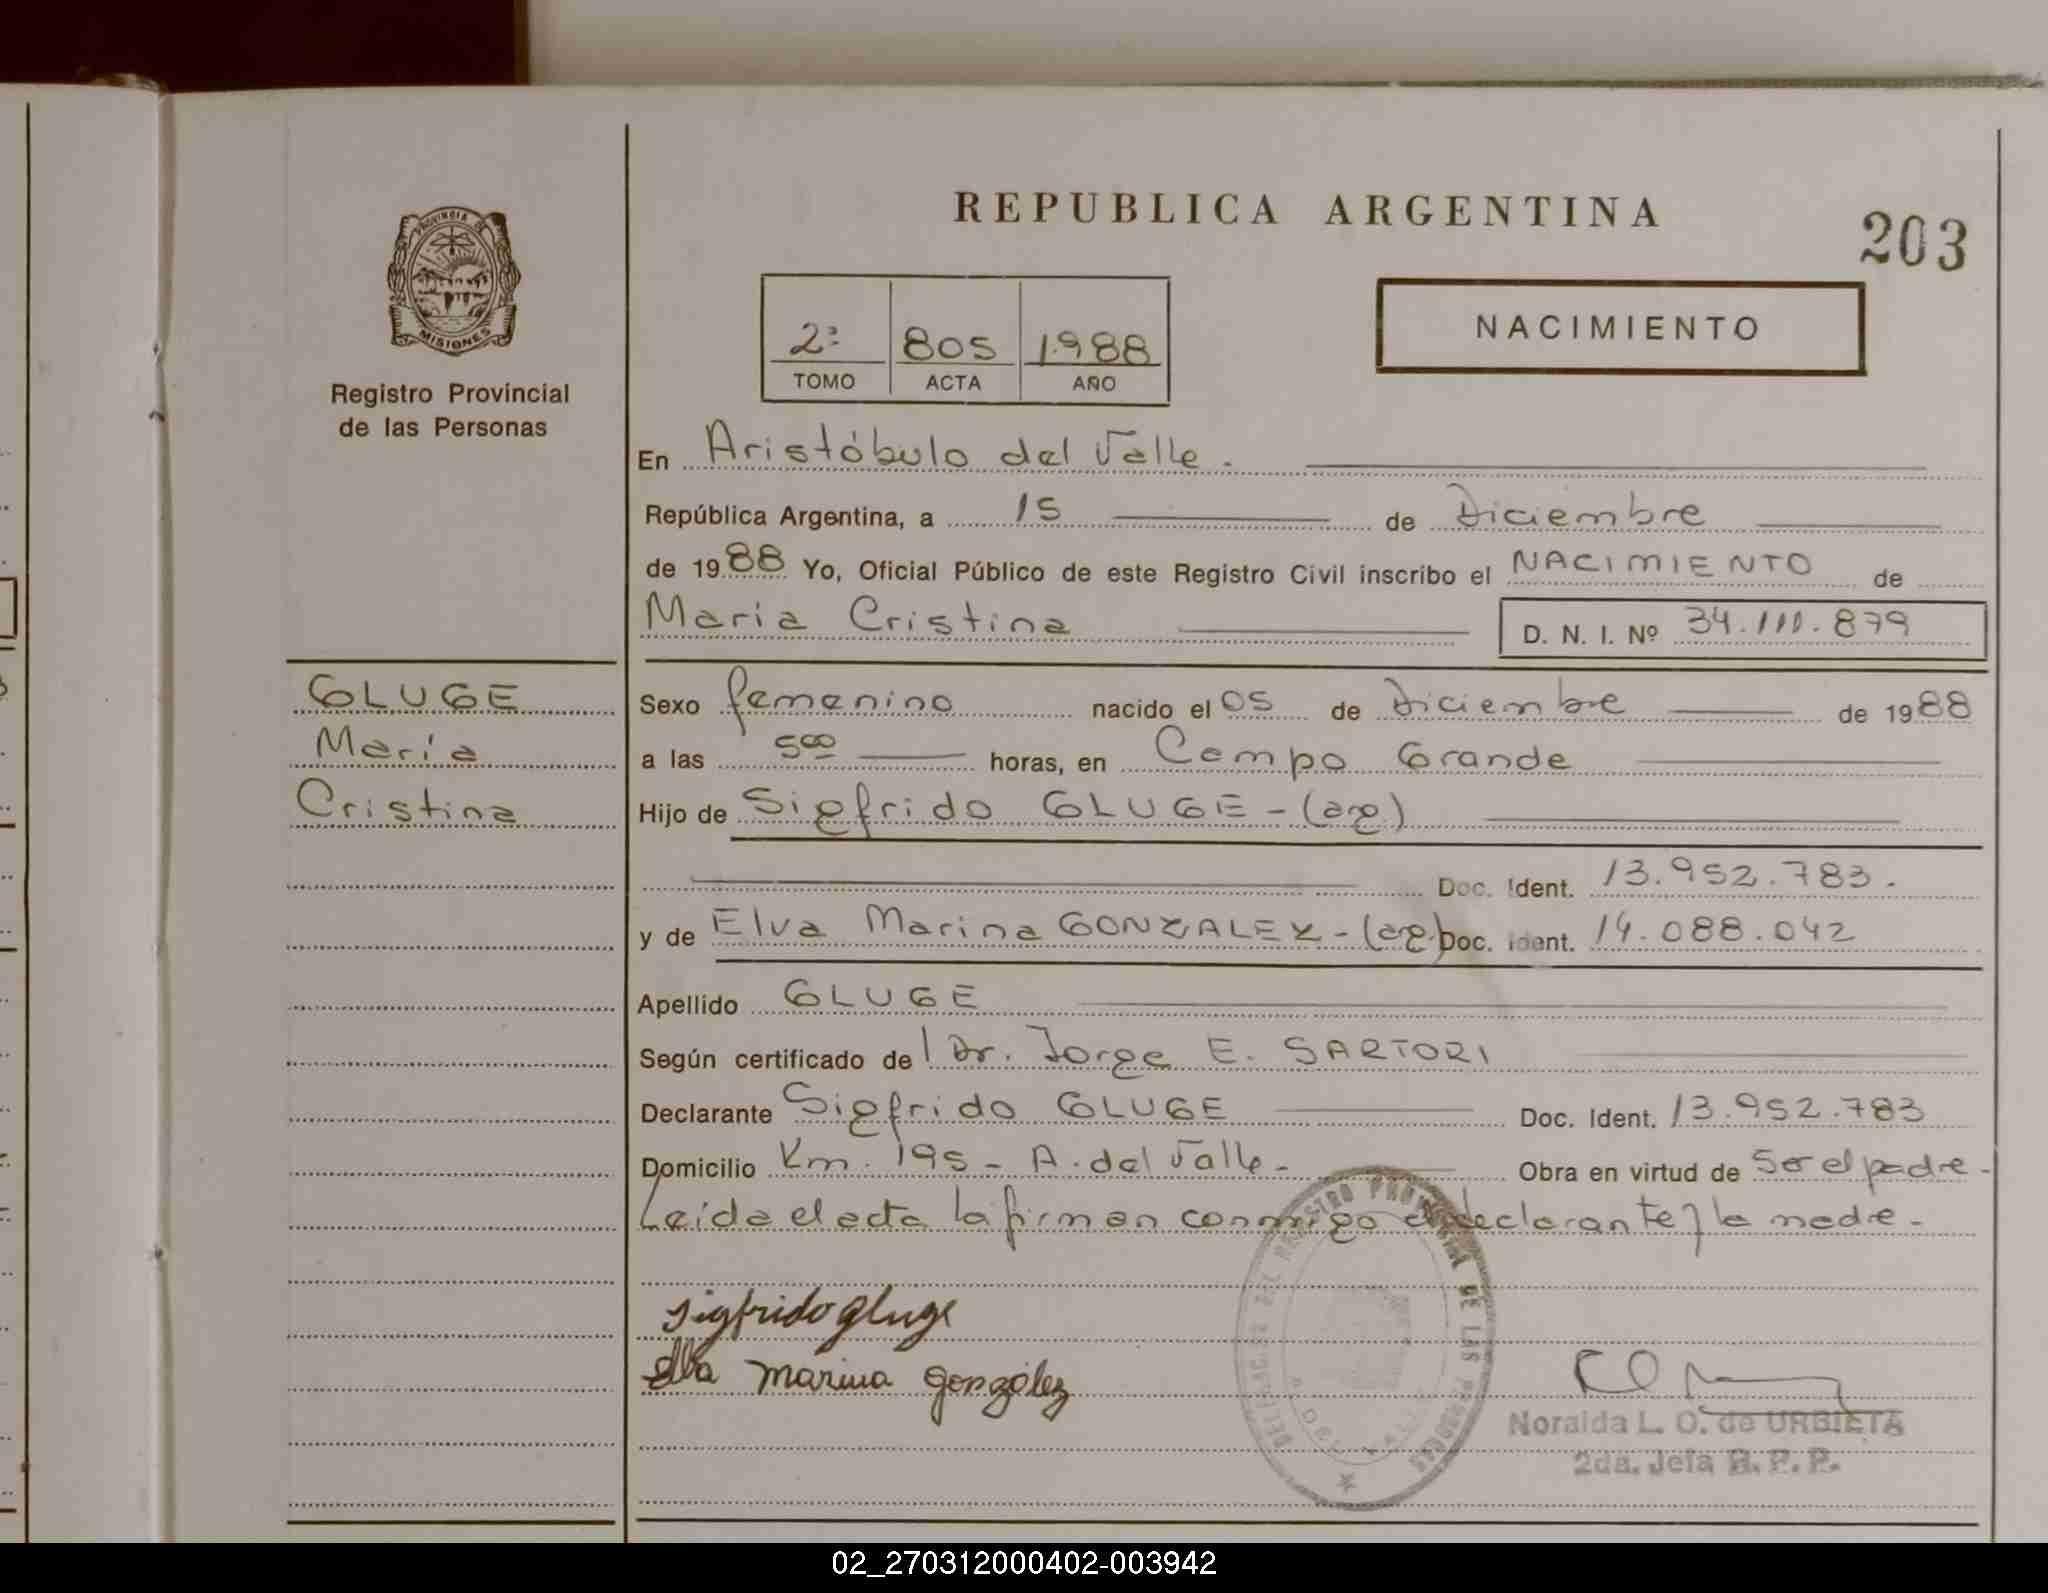 REPUBLICA ARGENTINA
203
PROVINCIA DE
MISIONES
Registro Provincial
de las Personas
2º 805 1.988
TOMO ACTA AÑO
NACIMIENTO
En Aristóbulo del Valle.
República Argentina, a 15 de Diciembre
de 1988 Yo, Oficial Público de este Registro Civil inscribo el NACIMIENTO de
María Cristina D. N. I. Nº 34.111.879
GLUGE
María
Cristina
Sexo femenino nacido el 05 de Diciembre de 1988
a las 5⁰⁰ horas, en Campo Grande
Hijo de Sigfrido GLUGE - (arg.)
Doc. Ident. 13.952.783.
y de Elva Marina GONZALEZ - (arg.) Doc. Ident. 14.088.042
Apellido GLUGE
Según certificado de Dr. Jorge E. SARTORI
Declarante Sigfrido GLUGE Doc. Ident. 13.952.783
Domicilio Km. 195 - A. del Valle - Obra en virtud de Ser el padre -
Leída el acta la firman conmigo el declarante y la madre -
Sigfrido Gluge
Elva Marina González
DELEGACION DEL REGISTRO PROVINCIAL DE LAS PERSONAS
A. DEL VALLE
Noraida L. O. de URBIETA
2da. Jefa R. P. P.
02_270312000402-003942